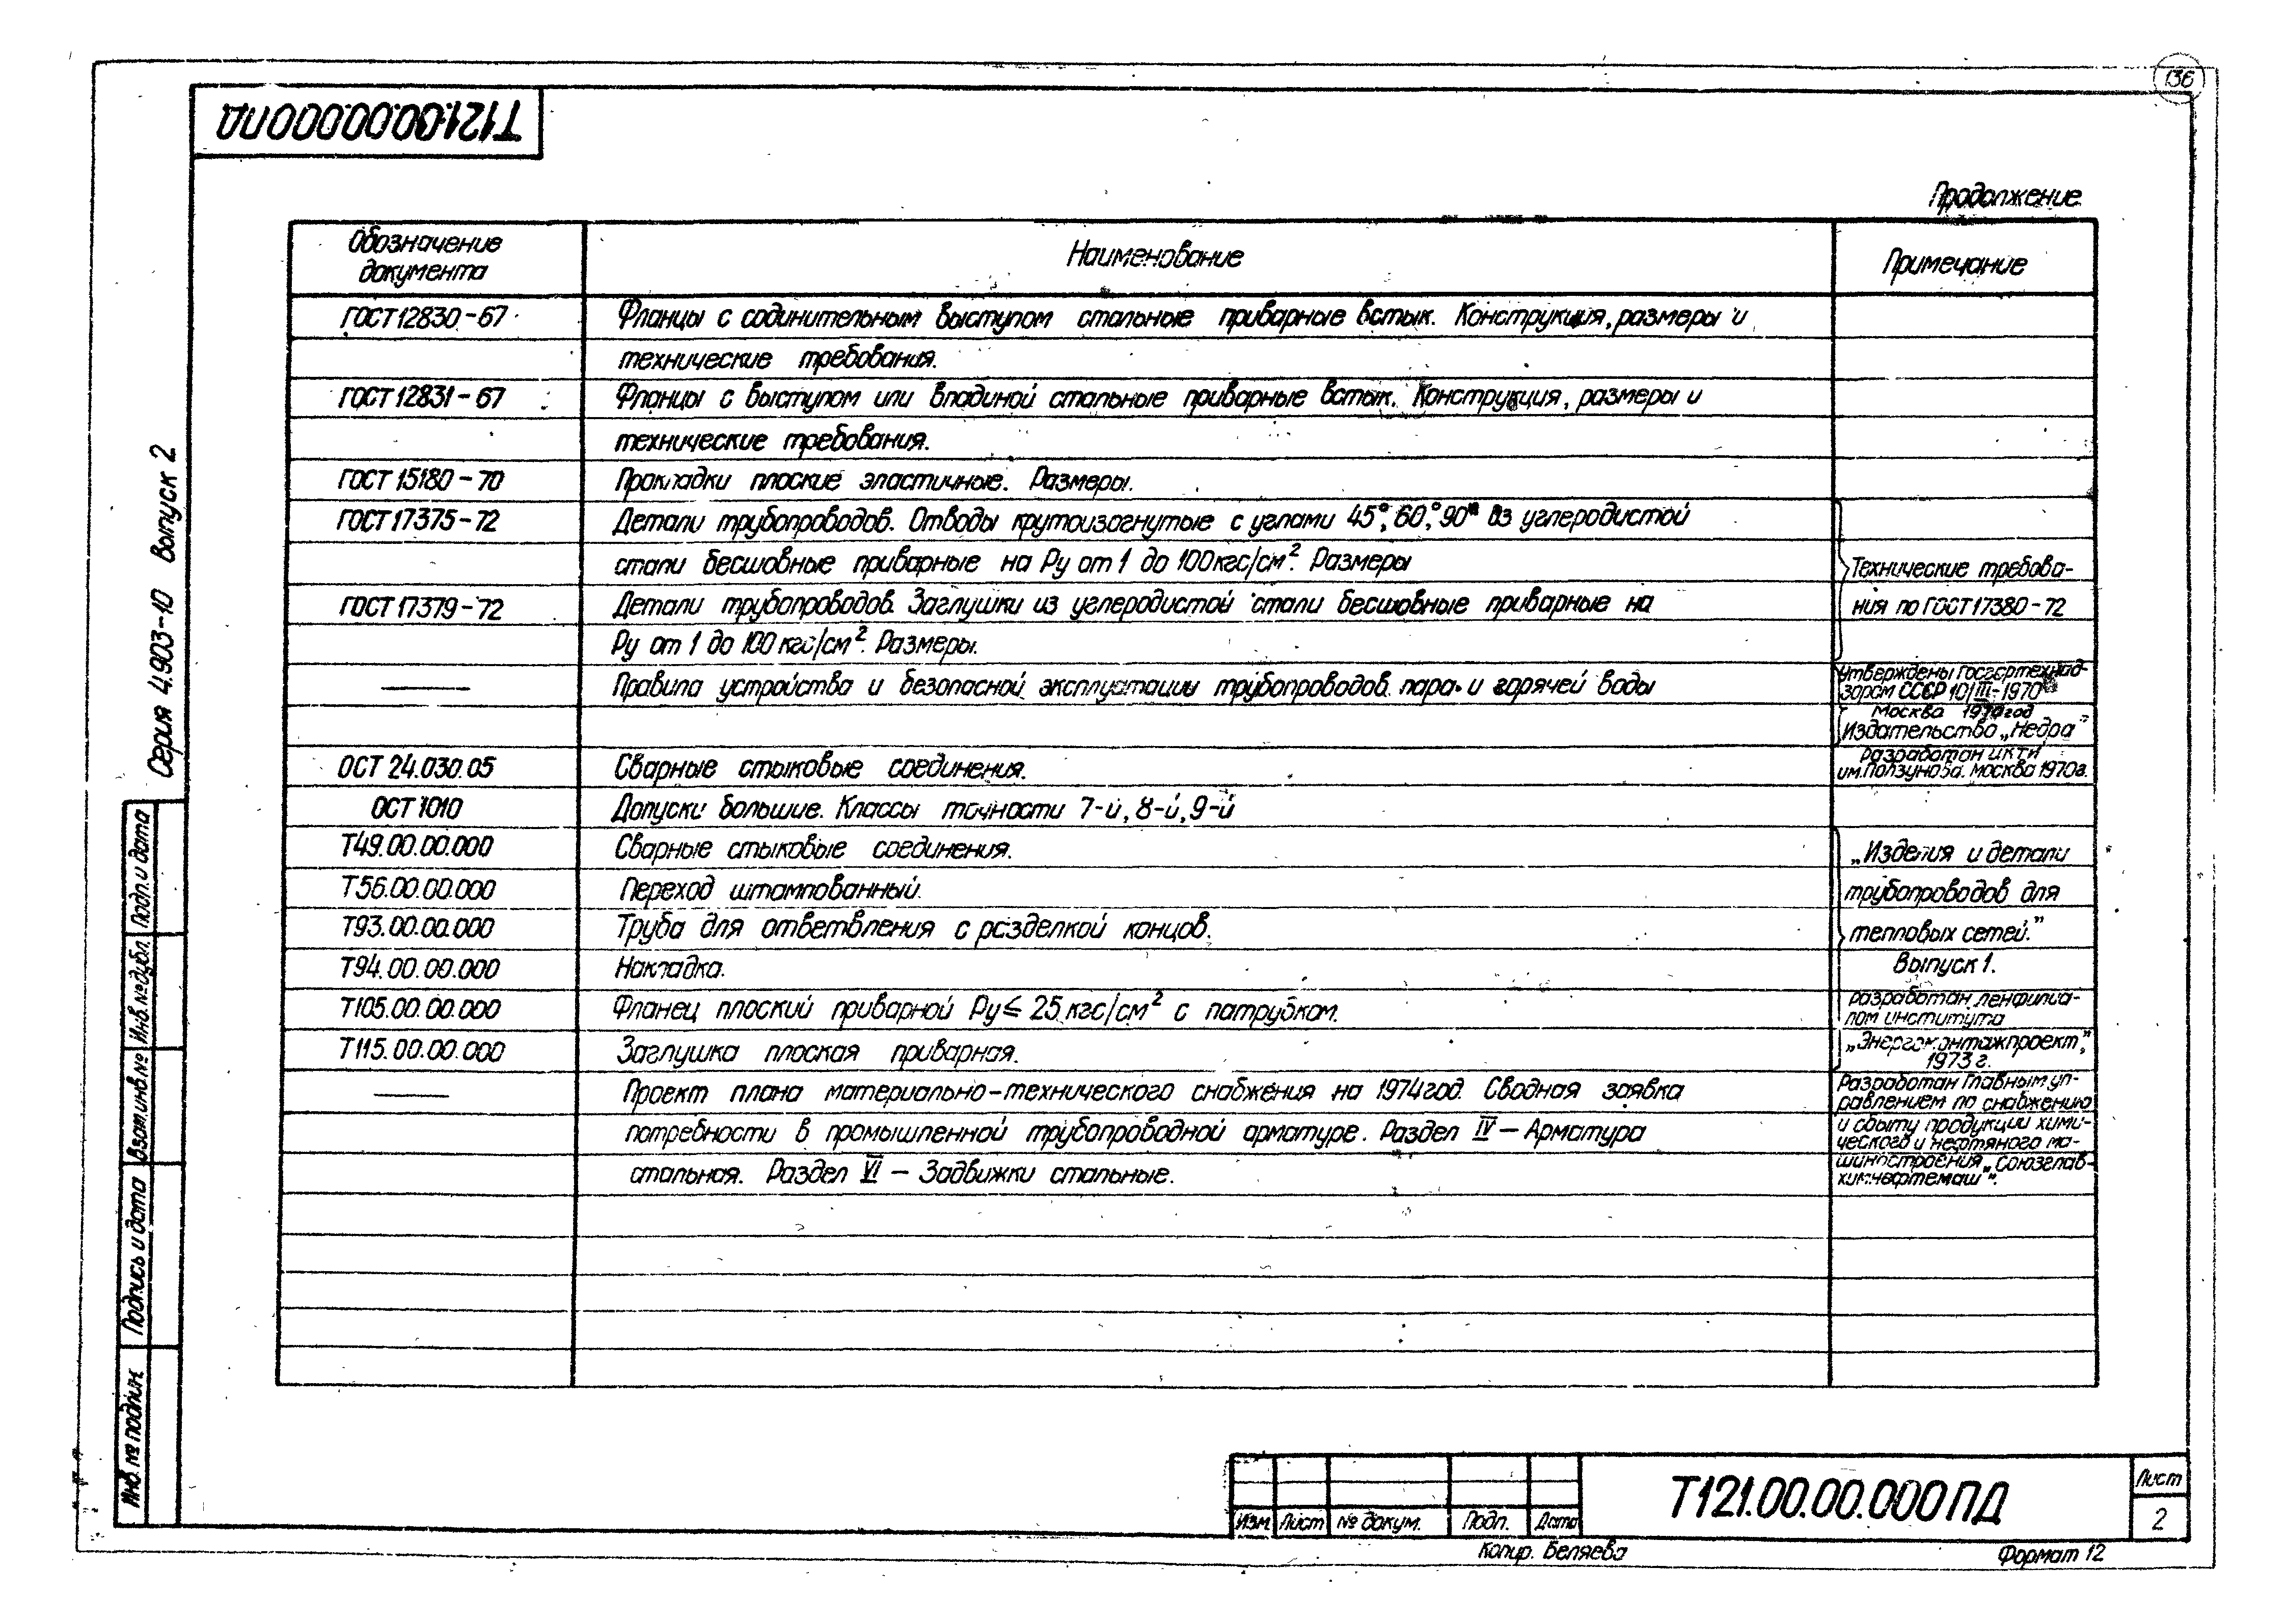 136
Т121.00.00.000ПД
Продолжение
Обозначение
документа
Наименование
Примечание
ГОСТ 12830-67
Фланцы с содинительным выступом стальные приварные встык. Конструкция, размеры и
технические требования.
ГОСТ 12831-67
Фланцы с выступом или впадиной стальные приварные встык. Конструкция, размеры и
технические требования.
ГОСТ 15180-70
Прокладки плоские эластичные. Размеры.
ГОСТ 17375-72
Детали трубопроводов. Отводы крутоизогнутые с углами 45°, 60°, 90° из углеродистой
стали бесшовные приварные на Ру от 1 до 100 кгс/см². Размеры
Технические требова-
ГОСТ 17379-72
Детали трубопроводов. Заглушки из углеродистой стали бесшовные приварные на
ния по ГОСТ 17380-72
Ру от 1 до 100 кгс/см². Размеры.
—
Правила устройства и безопасной эксплуатации трубопроводов пара и горячей воды
Утверждены Госгортехнад-
зором СССР 10/III-1970
Москва 1970 год
Издательство „Недра"
ОСТ 24.030.05
Сварные стыковые соединения.
Разработан ЦКТИ
им. Ползунова. Москва 1970г.
ОСТ 1010
Допуски большие. Классы точности 7-й, 8-й, 9-й
Т49.00.00.000
Сварные стыковые соединения.
„Изделия и детали
Т56.00.00.000
Переход штампованный.
трубопроводов для
Т93.00.00.000
Труба для ответвления с разделкой концов.
тепловых сетей."
Т94.00.00.000
Накладка.
Выпуск 1.
Т105.00.00.000
Фланец плоский приварной Ру≤25 кгс/см² с патрубком.
Разработан Ленфилиа-
лом института
Т115.00.00.000
Заглушка плоская приварная.
„Энергомонтажпроект",
1973 г.
—
Проект плана материально-технического снабжения на 1974 год. Сводная заявка
Разработан Главным уп-
равлением по снабжению
потребности в промышленной трубопроводной арматуре. Раздел IV — Арматура
и сбыту продукции хими-
ческого и нефтяного ма-
стальная. Раздел VI — Задвижки стальные.
шиностроения „Союзглав-
химнефтемаш".
Серия 4.903-10 Выпуск 2
Подп. и дата
Инв. № дубл.
Взам. инв. №
Подпись и дата
Инв. № подлин.
Изм.
Лист
№ докум.
Подп.
Дата
Т121.00.00.000ПД
Лист
2
Копир. Беляева
Формат 12